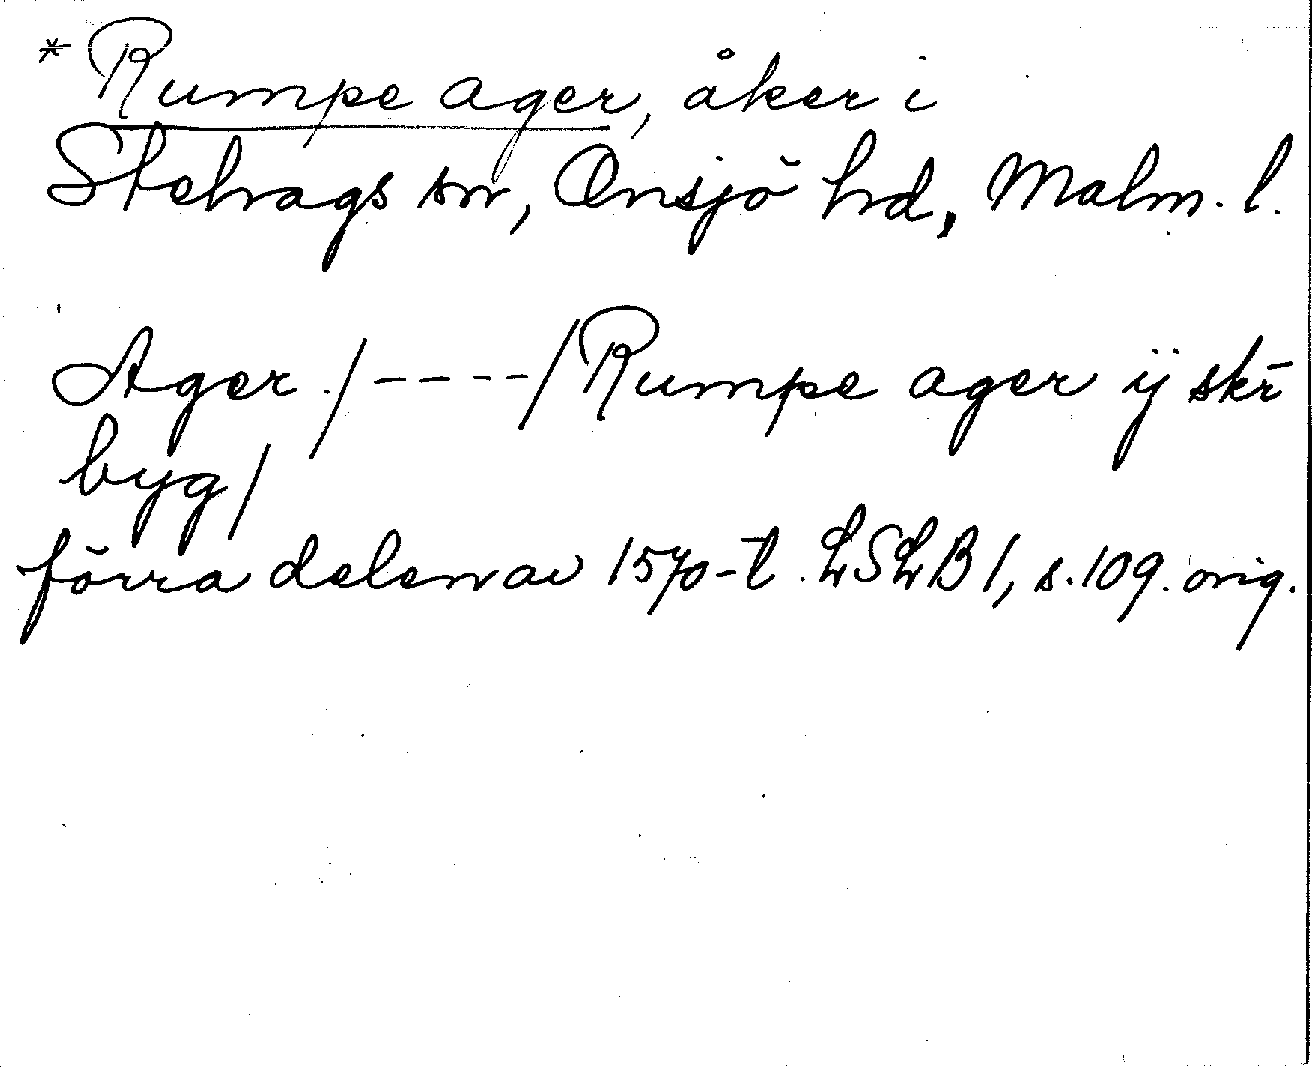 * Rumpe ager, åker i
Stehags sn, Onsjö hd, Malm. l.
Ager /----/ Rumpe ager ÿ skr̄
byg/
förra delen av 1570-t. LSLB 1, s. 109. orig.